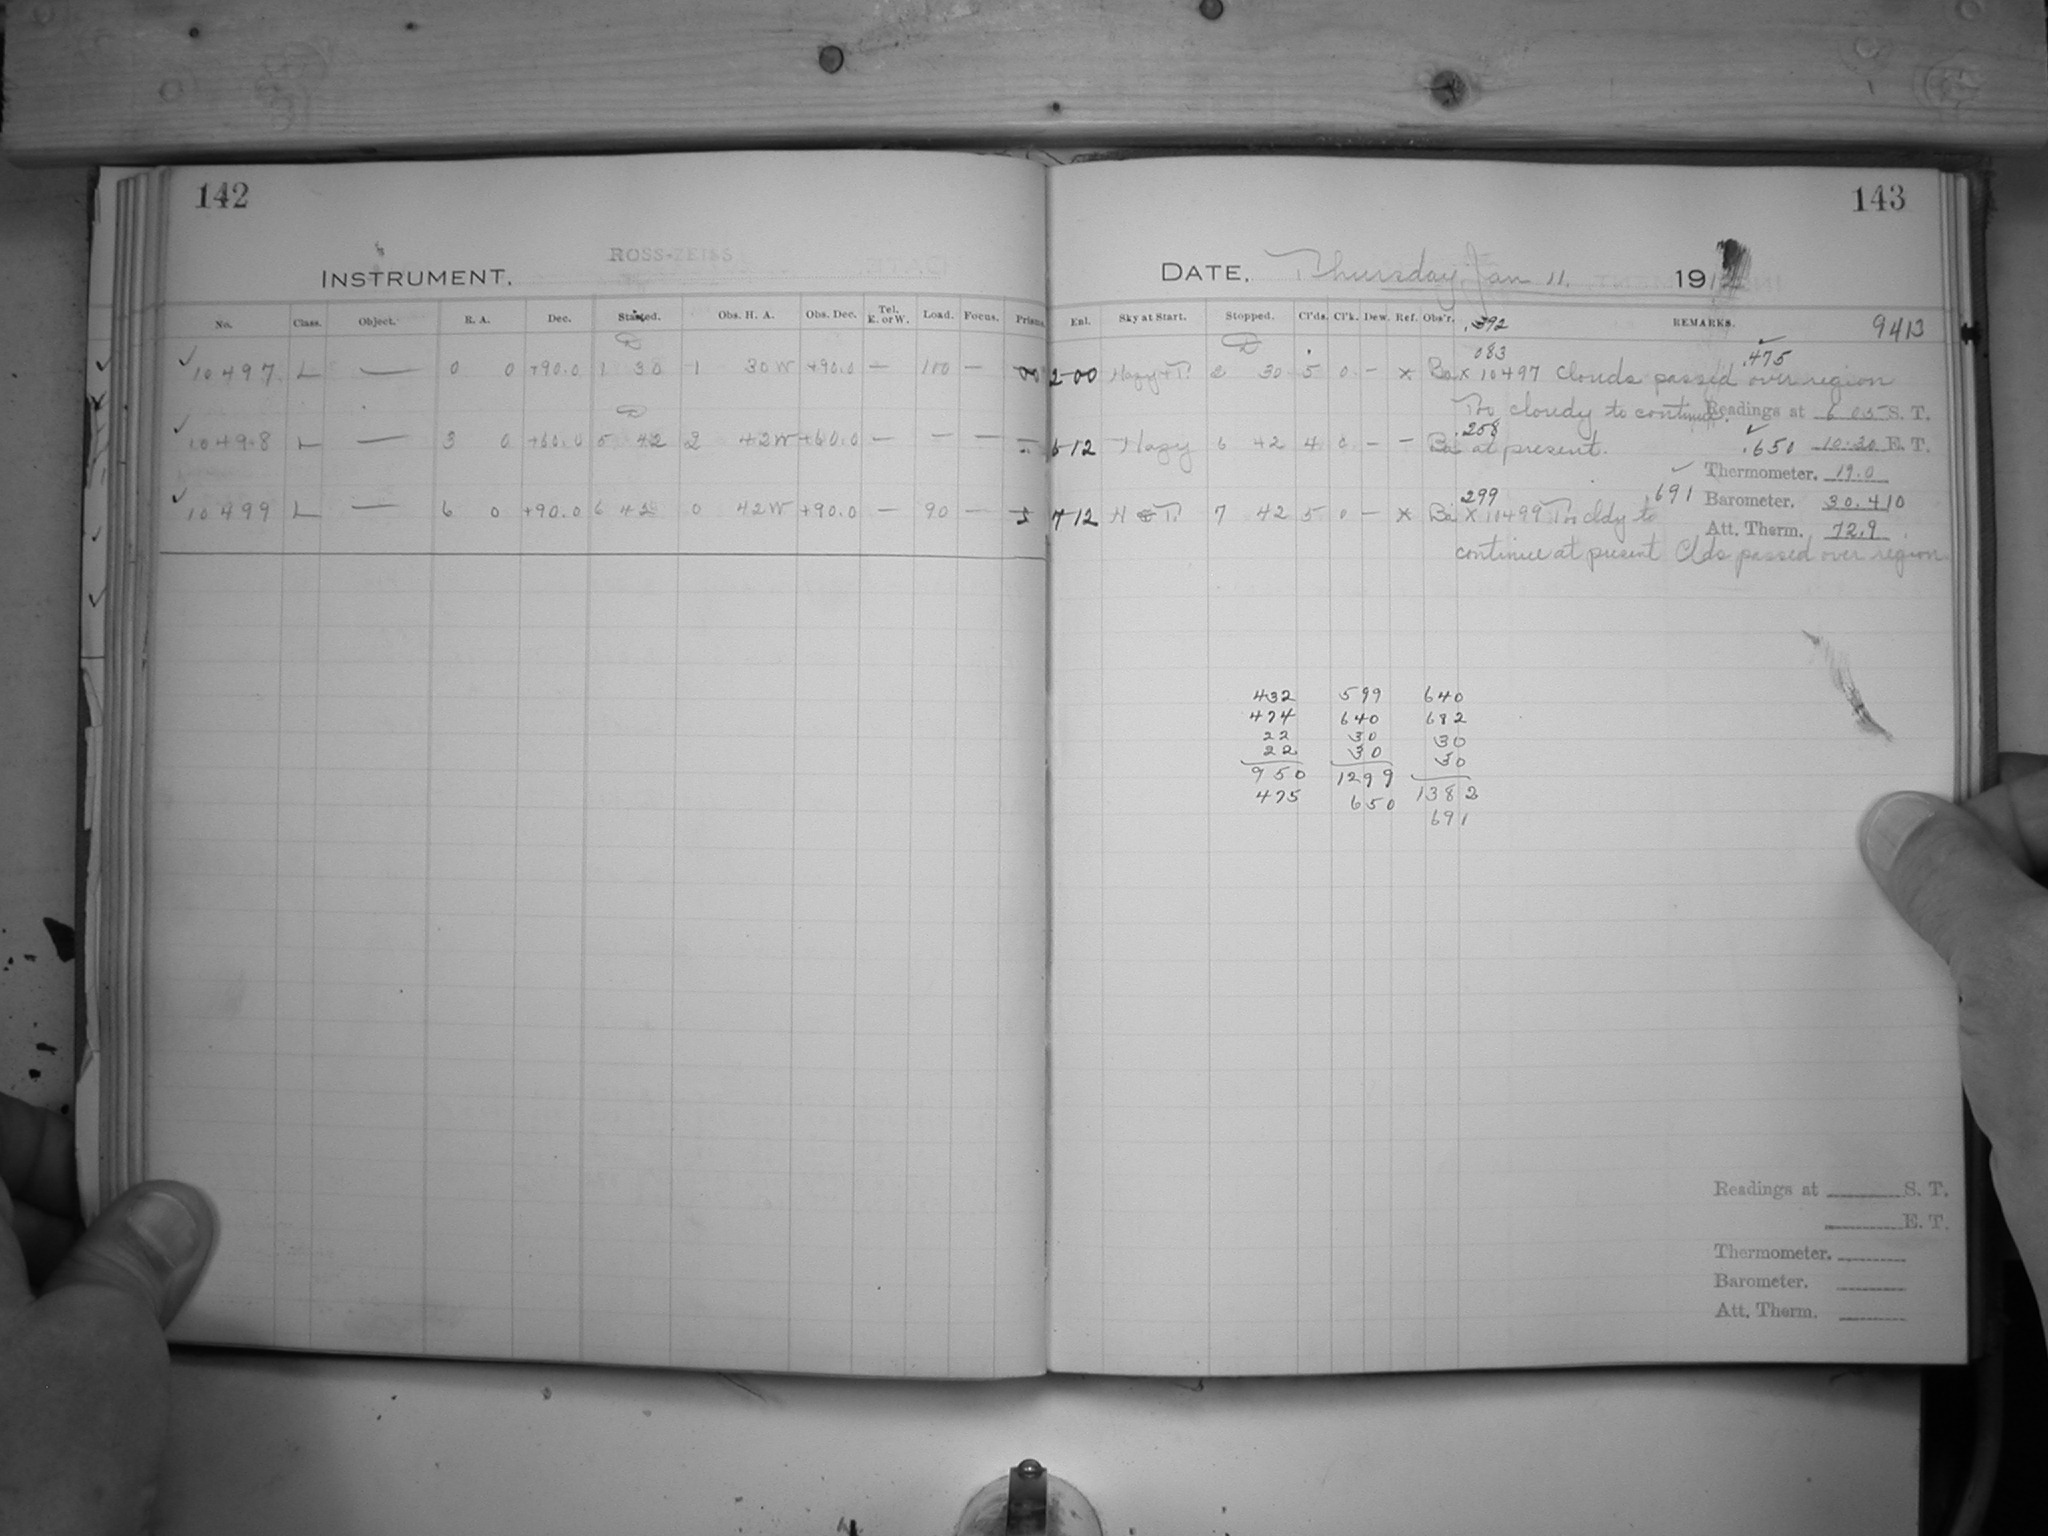 142
ROSS-ZEISS
INSTRUMENT.
No. Class. Object. R. A. Dec. Started. Obs. H. A. Obs. Dec. Tel. E. or W. Load. Focus. Prisms.
✓ 10497 L — 0 0 +90.0 1 30 1 30 W +90.0 — 100 —
✓ 10498 L — 3 0 +60.0 5 42 2 42 W +60.0 — — —
✓ 10499 L — 6 0 +90.0 6 42 0 42 W +90.0 — 90 —
143
DATE. Thursday, Jan 11. 191
Enl. Sky at Start. Stopped. Cl'ds. Cl'k. Dew. Ref. Obs'r. REMARKS.
.392 9413
083 ✓ .475
2 00 Hazy + T. 2 30 5 0 — x Ba x 10497 Clouds passed over region
Too cloudy to continue. Readings at 6 05 S. T.
.258 ✓
6 12 Hazy 6 42 4 0 — — Ba at present. .650 10.30 E. T.
Thermometer. 19.0
299 ✓ .691 Barometer. 30.410
7 12 H & T. 7 42 5 0 — x Ba x 10499 Too cldy to
Att. Therm. 72.9
continue at present Clds passed over region
432 599 640
474 640 682
22 30 30
22 30 30
950 1299 1382
475 650 691
Readings at S. T.
E. T.
Thermometer.
Barometer.
Att. Therm.